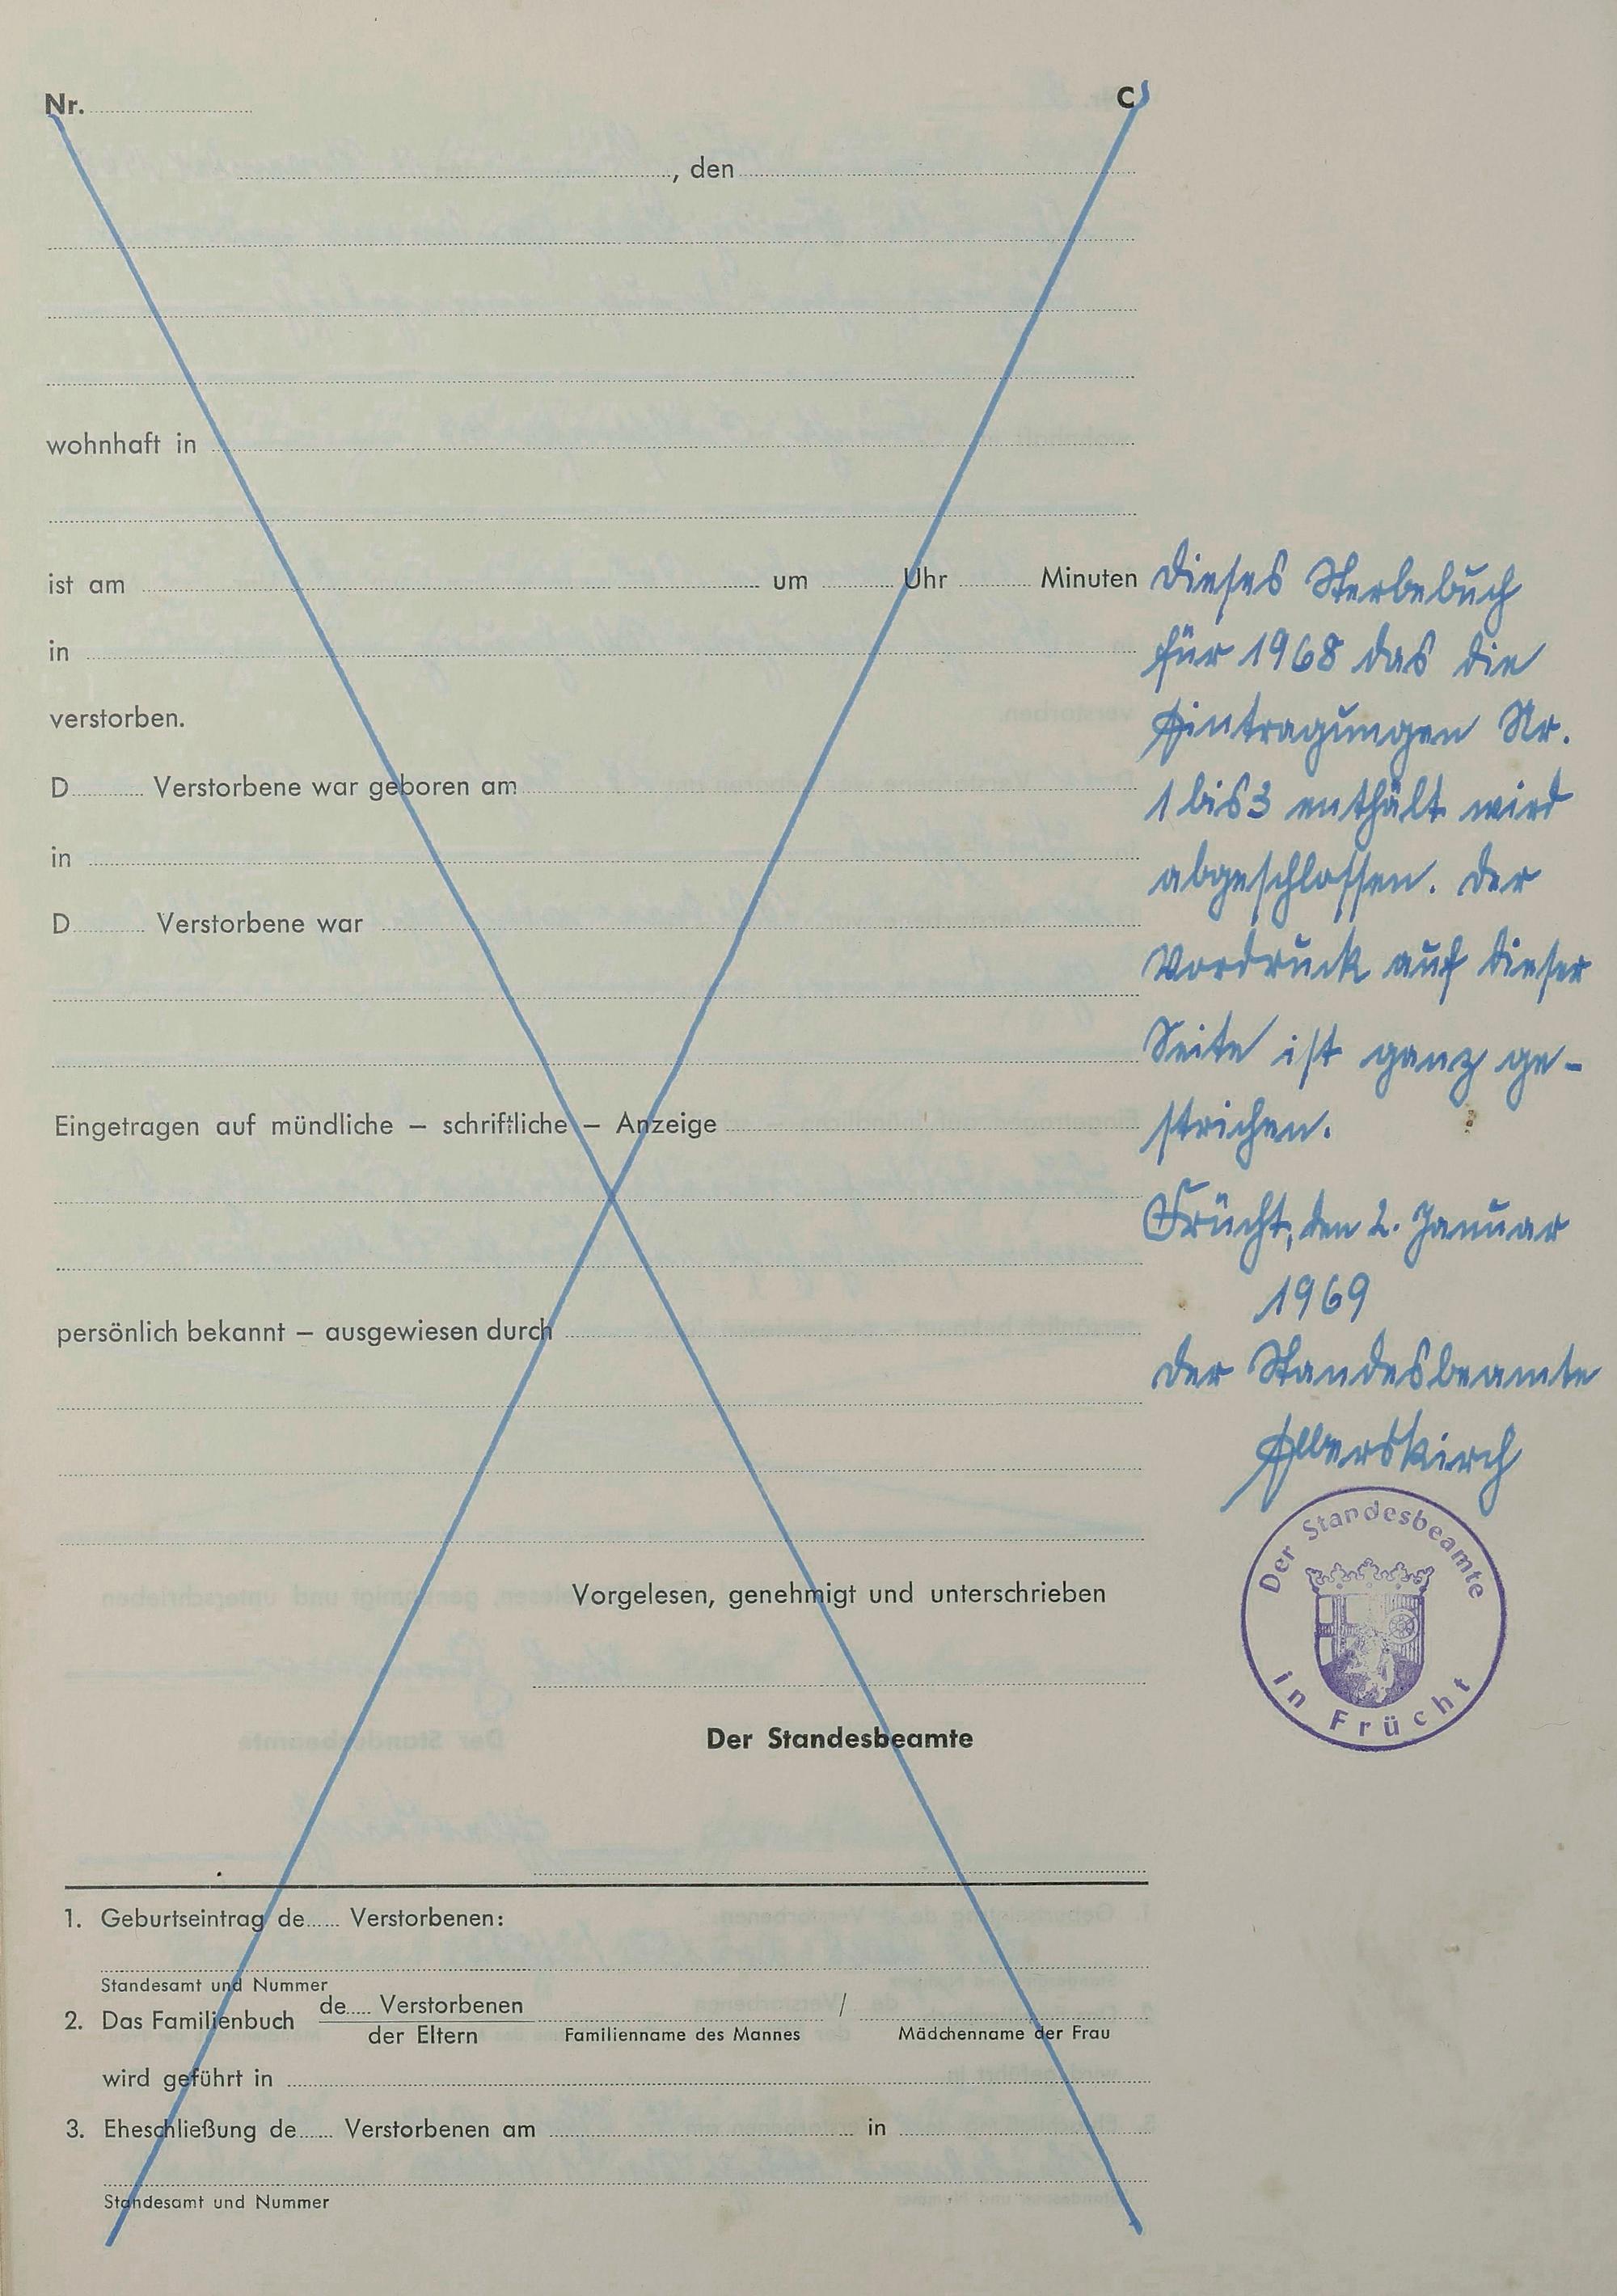 Nr. C
, den
wohnhaft in
ist am um Uhr Minuten
in
verstorben.
D Verstorbene war geboren am
in
D Verstorbene war
Eingetragen auf mündliche – schriftliche – Anzeige
persönlich bekannt – ausgewiesen durch
Vorgelesen, genehmigt und unterschrieben
Der Standesbeamte
1. Geburtseintrag de Verstorbenen:
Standesamt und Nummer
2. Das Familienbuch de Verstorbenen /
der Eltern Familienname des Mannes Mädchenname der Frau
wird geführt in
3. Eheschließung de Verstorbenen am in
Standesamt und Nummer
Dieses Sterbebuch
für 1968 das die
Eintragungen Nr.
1 bis 3 enthält wird
abgeschlossen. Der
Vordruck auf dieser
Seite ist ganz ge-
strichen.
Frücht, den 2. Januar
1969
Der Standesbeamte
Der Standesbeamte
in Frücht